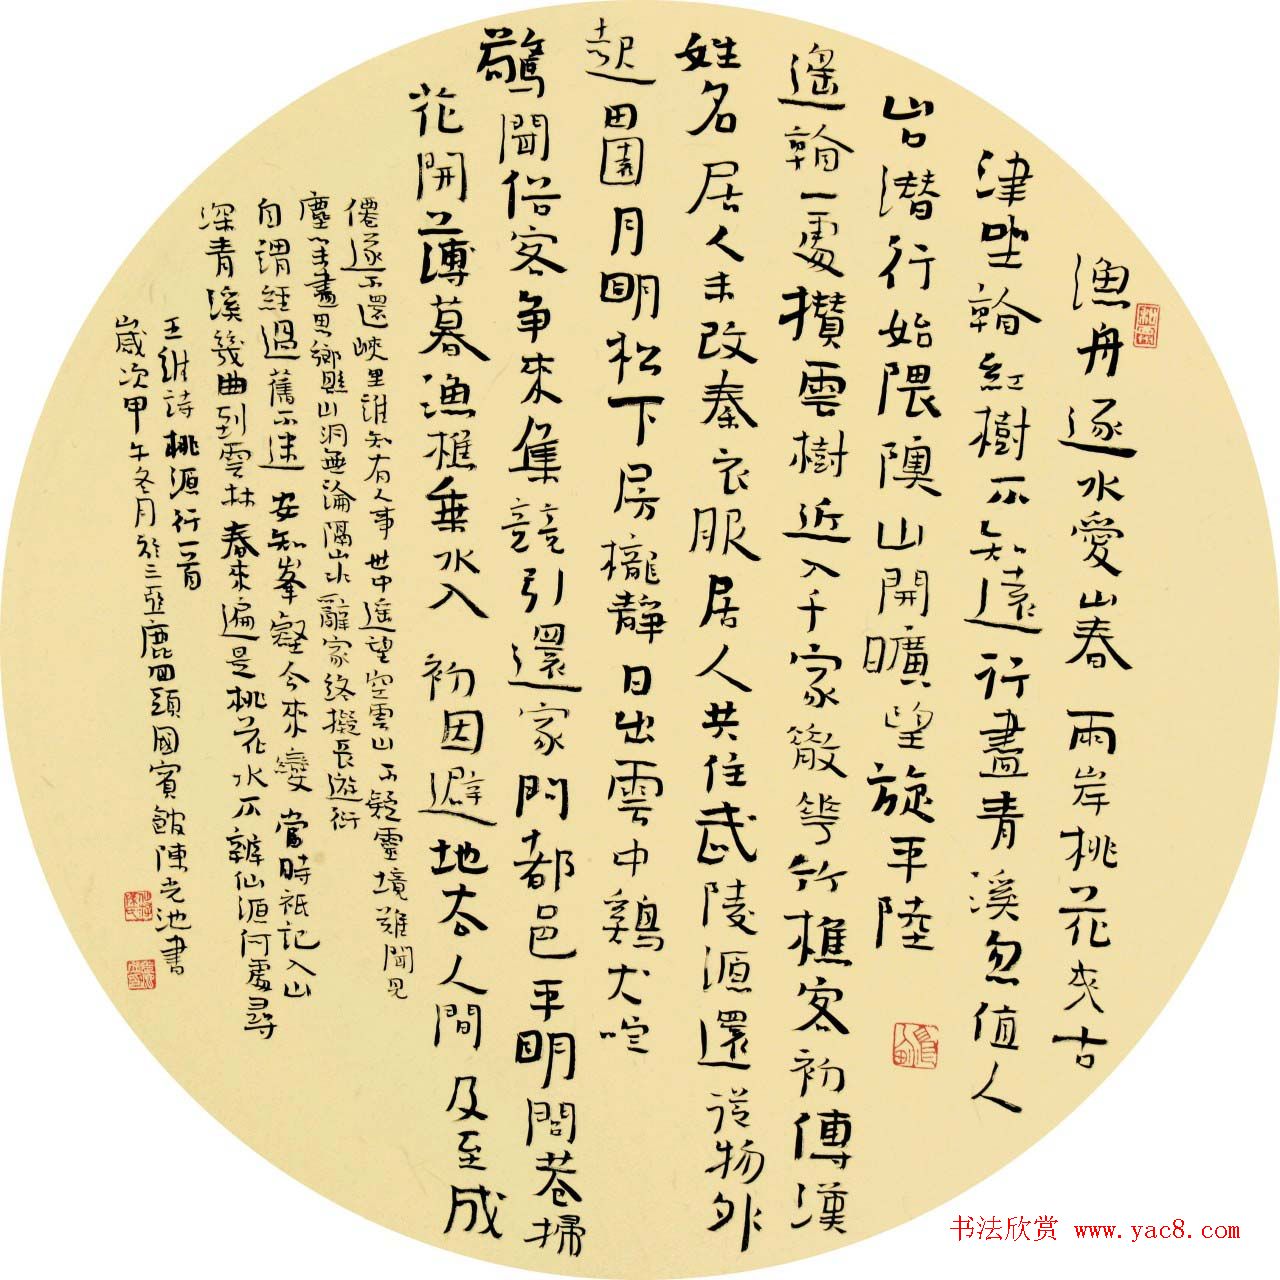 漁舟逐水愛山春兩岸桃花夾古
津坐看紅樹不知遠行盡青溪忽值人
山口潛行始隈隩山開曠望旋平陸
遙看一處攢雲樹近入千家散花竹樵客初傳漢
姓名居人未改秦衣服居人共住武陵源還從物外
起田園月明松下房櫳靜日出雲中鷄犬喧
驚聞俗客爭來集競引還家問都邑平明閭巷掃
花開薄暮漁樵乘水入初因避地去人間及至成
僊遂不還峽里誰知有人事世中遙望空雲山不疑靈境難聞見
塵心未盡思鄉縣出洞無論隔山水辭家終擬長遊衍
自謂經過舊不迷安知峯壑今來變當時衹記入山
深青溪幾曲到雲林春來遍是桃花水不辨仙源何處尋
王維詩桃源行一首
歲次甲午冬月於三亞鹿回頭國賓館陳光池書
书法欣赏 www.yac8.com